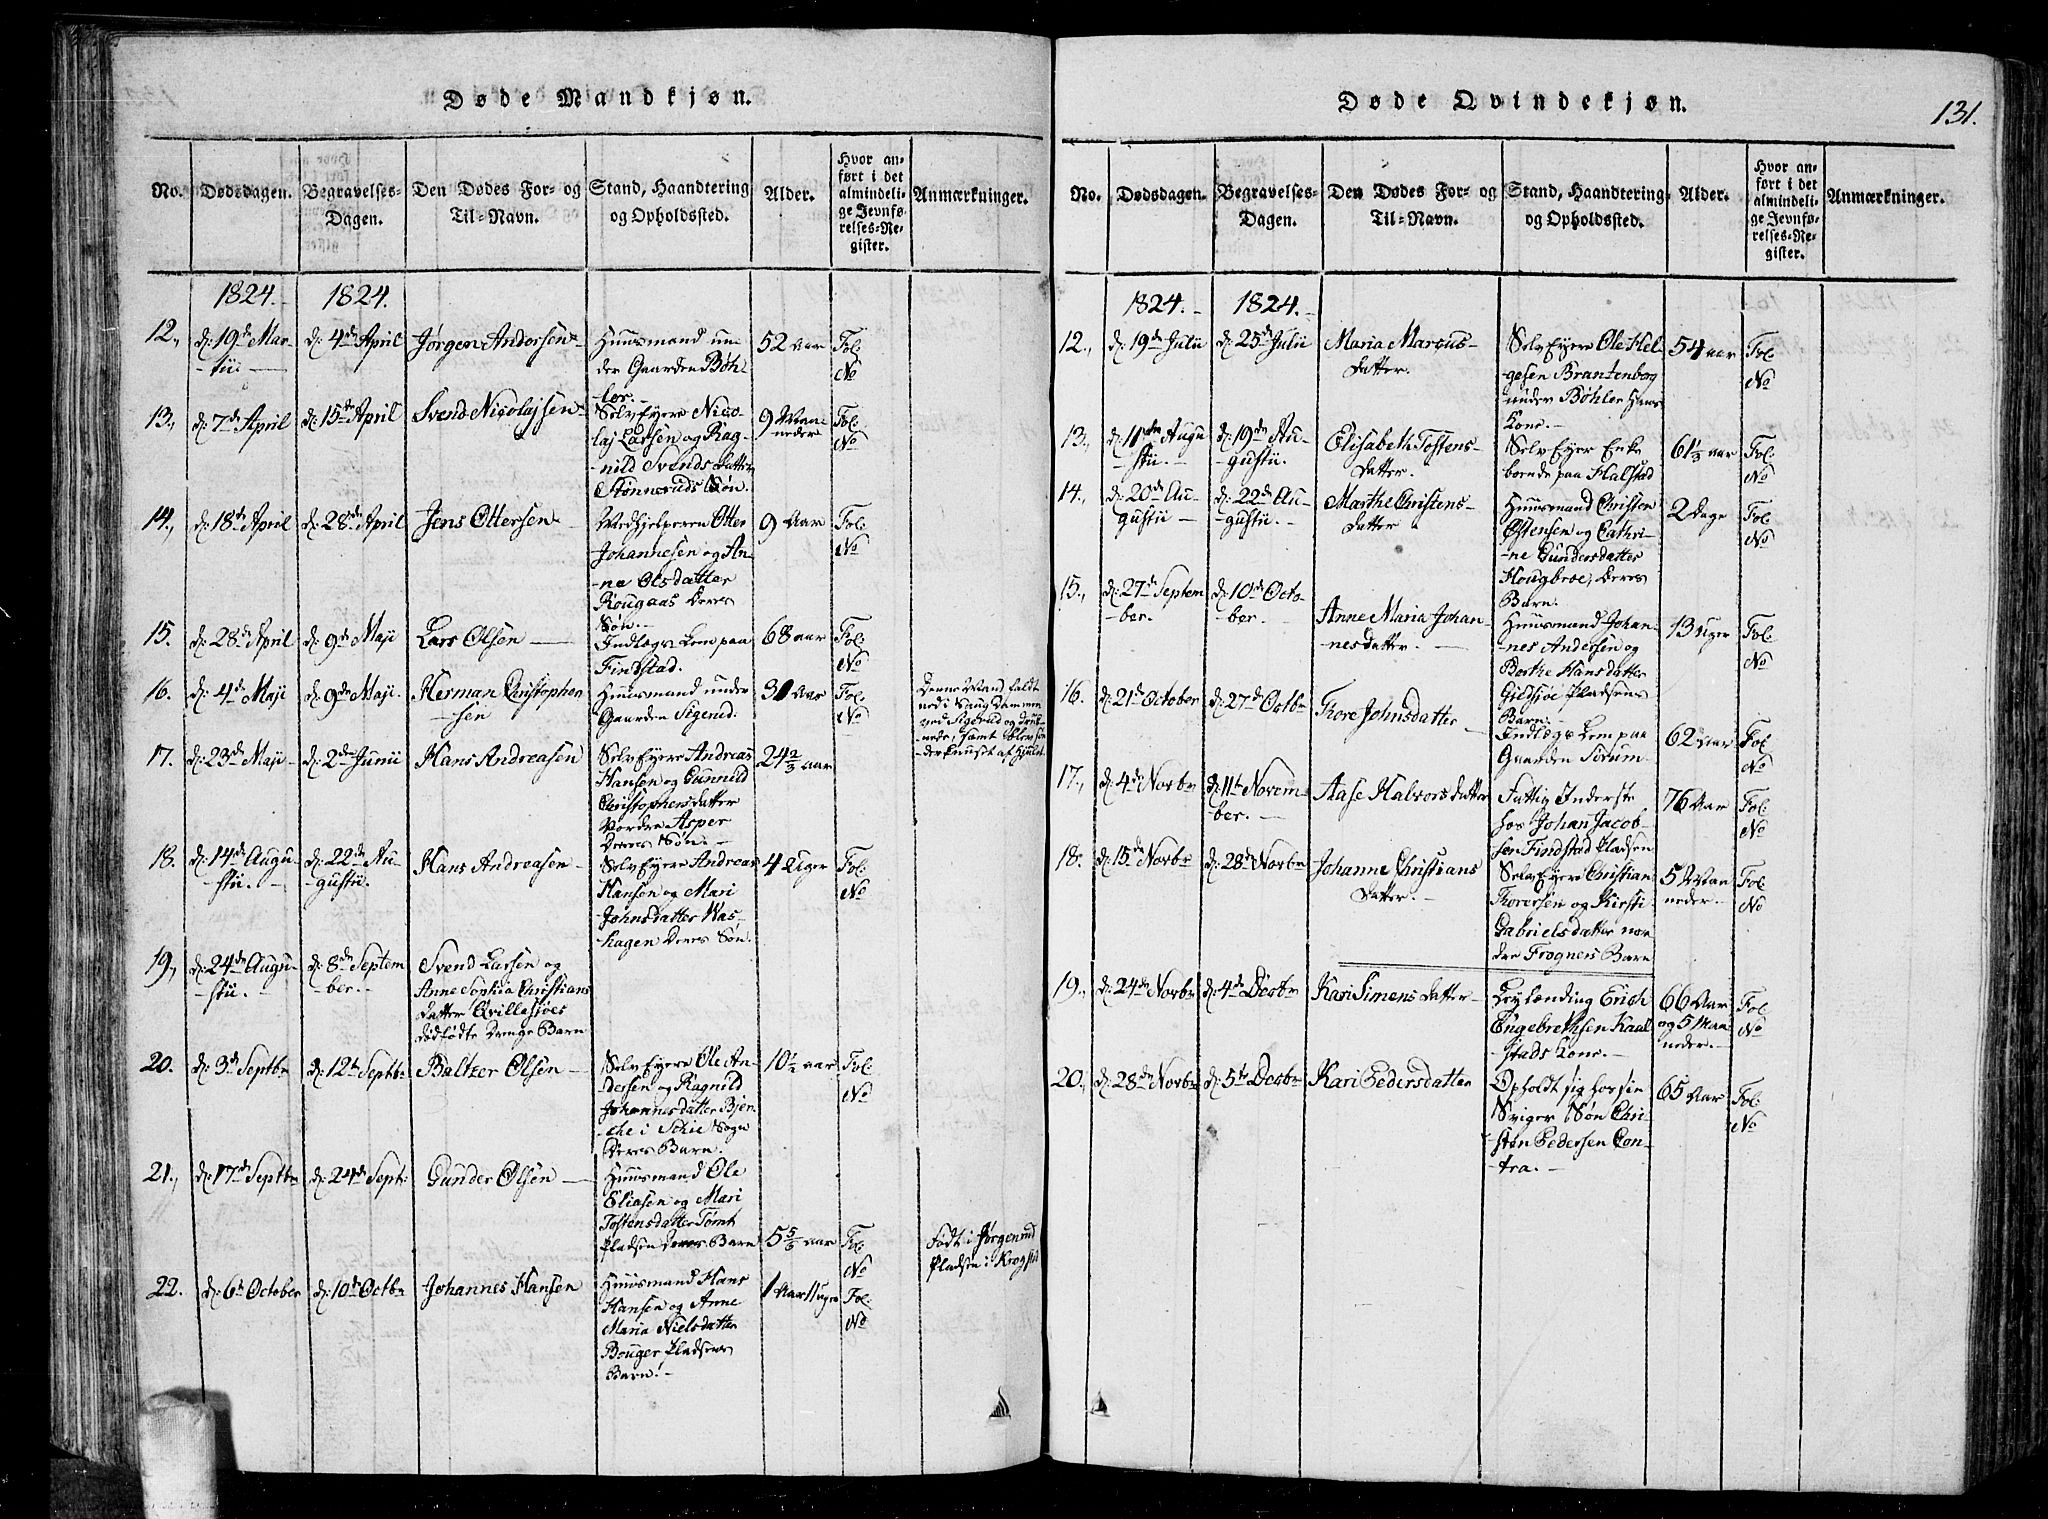 Døde Mandkjøn.
No. Dødsdagen. Begravelses-Dagen. Den Dødes For- og Til-Navn. Stand, Haandtering og Opholdssted. Alder. Hvor anført i det almindelige Jevnførelses-Register. Anmærkninger.
1824.- 1824.
12., d: 19de Mar-
tii: d: 4de April Jørgen Andersen Huusmand un-
der Gaarden Bøh-
ler.- 52 aar Fol:
No
13., d: 7de April d: 15de April Svend Nicolajsen Selv Eyere Nico-
laj Larsen og Rag-
nild Svends Datter
Stønnerud Søn. 9 Maa-
neder Fol:
No
14., d: 18de April d: 28de April Jens Ottersen Medhjelperen Otter
Johannesen og An-
ne Olsdatter
Rougaas Deres
Søn.- 9 Aar Fol:
No
15. d: 28de April d: 9de Maji Lars Olsen Indlægs Lem paa
Findstad. 68 aar Fol:
No
16. d: 4de Maji d: 9de Maji. Herman Christopher-
sen Huusmand under
Gaarden Sigerud. 31 Aar Fol:
No Denne Mand faldt
ned i Saug Dammen
ved Sigerud og druk-
nede, samt blev søn-
derknuset af Hjulet
17. d: 23de Maji d: 2de Junii Hans Andreasen Selv Eyere Andreas
Hansen og Gunnild
Christophersdatter
Nordre Asper
Deres Søn.- 24 2/3 aar
18. d: 14de Augu-
stii.- d: 22de Au-
gustii. Hans Andreasen Selv Eyere Andreas
Hansen og Mari
Johnsdatter Was-
hagen Deres Søn. 4 Uger Fol:
No
19., d: 24de Augu-
stii.- d: 8de Septem
ber.- Svend Larsen og
Anne Sophia Christians
Datter Qvillesjøes
dødfødte Drenge Barn
20. d: 3de Septbr d: 12te Septbr Baltzer Olsen Selv Eyere Ole An-
dersen og Ragnild
Johannesdatter Bjer-
che i Schie Sogn
Deres Barn. 10 1/2 aar Fol:
No
21., d: 17de Septbr d: 24de Sept: Gunder Olsen Huusmand Ole
Eliasen og Mari
Tostensdatter Tømt
Pladsen Deres Barn 5 5/6 aar Fol:
No Født i Jørgenrud
Pladsen i Krogsta
22. d: 6te October d: 10de Octbr Johannes Hansen Huusmand Hans
Hansen og Anne
Maria Nielsdatter
Bouger Pladsens
Barn.- 1 Aar 11 uger Fol:
No
Døde Qvindekjøn.
131.
No. Dødsdagen. Begravelses-Dagen. Den Dødes For- og Til-Navn. Stand, Haandtering og Opholdssted. Alder. Hvor anført i det almindelige Jevnførelses-Register. Anmærkninger.
1824.- 1824.-
12., d: 19de Julii d: 25de Julii Maria Marcus-
Datter. Selv Eyere Ole Hel-
gesen Brantenborg
under Bøhler Hans
Kone.- 54 aar Fol:
No
13., d: 11te Augu
stii.- d: 19de Au-
gustii. Elisabeth Tostens-
Datter. Selv Eyer Enke
boende paa Halstad 61 1/3 aar Fol:
No
14., d: 20de Au-
gustii d: 22de Au-
gustii.- Marthe Christens-
Datter Huusmand Christen
Østensen og Cathri-
ne Gundersdatter
Hougbroe, Deres
Barn. 2 Dage Fol:
No
15., d: 27de Septem
ber. d: 10de Octo-
ber. Anne Maria Johan-
nesdatter.- Huusmand Johan-
nes Andersen og
Berthe Hansdatter
Gildsjøe Pladsens
Barn. 13 Uger Fol:
No
16. d: 21de October d: 27de Octbr Thore Johnsdatter Indlægs Lem paa
Gaarden Sørum. 62 Aar Fol:
No
17., d: 4de Novbr d: 11te Novem-
ber.- Aase Halvors Datter Fattig Inderste
hos Johan Jacob-
sen Findstad Pladsen 76 Aar Fol:
No
18. d: 15de Novbr d: 28de Novbr Johanne Christians
Datter.- Selv Eyere Christian
Thoresen og Kirsti
Gabrielsdatter nor
dre Frogners Barn 5 Maa
neder.- Fol:
No
19., d: 24de Novbr d: 4de Decbr Kari Simens Datter Leylænding Erich
Engebrethsen Kaal-
stads Kone.- 66 Aar
og 5 Maa
neder.- Fol:
No
20., d: 28de Novbr d: 5te Decbr Kari Pedersdatter Opholdt sig hos sin
Sviger Søn Chri-
sten Pedersen Con-
tra.- 65 Aar Fol:
No